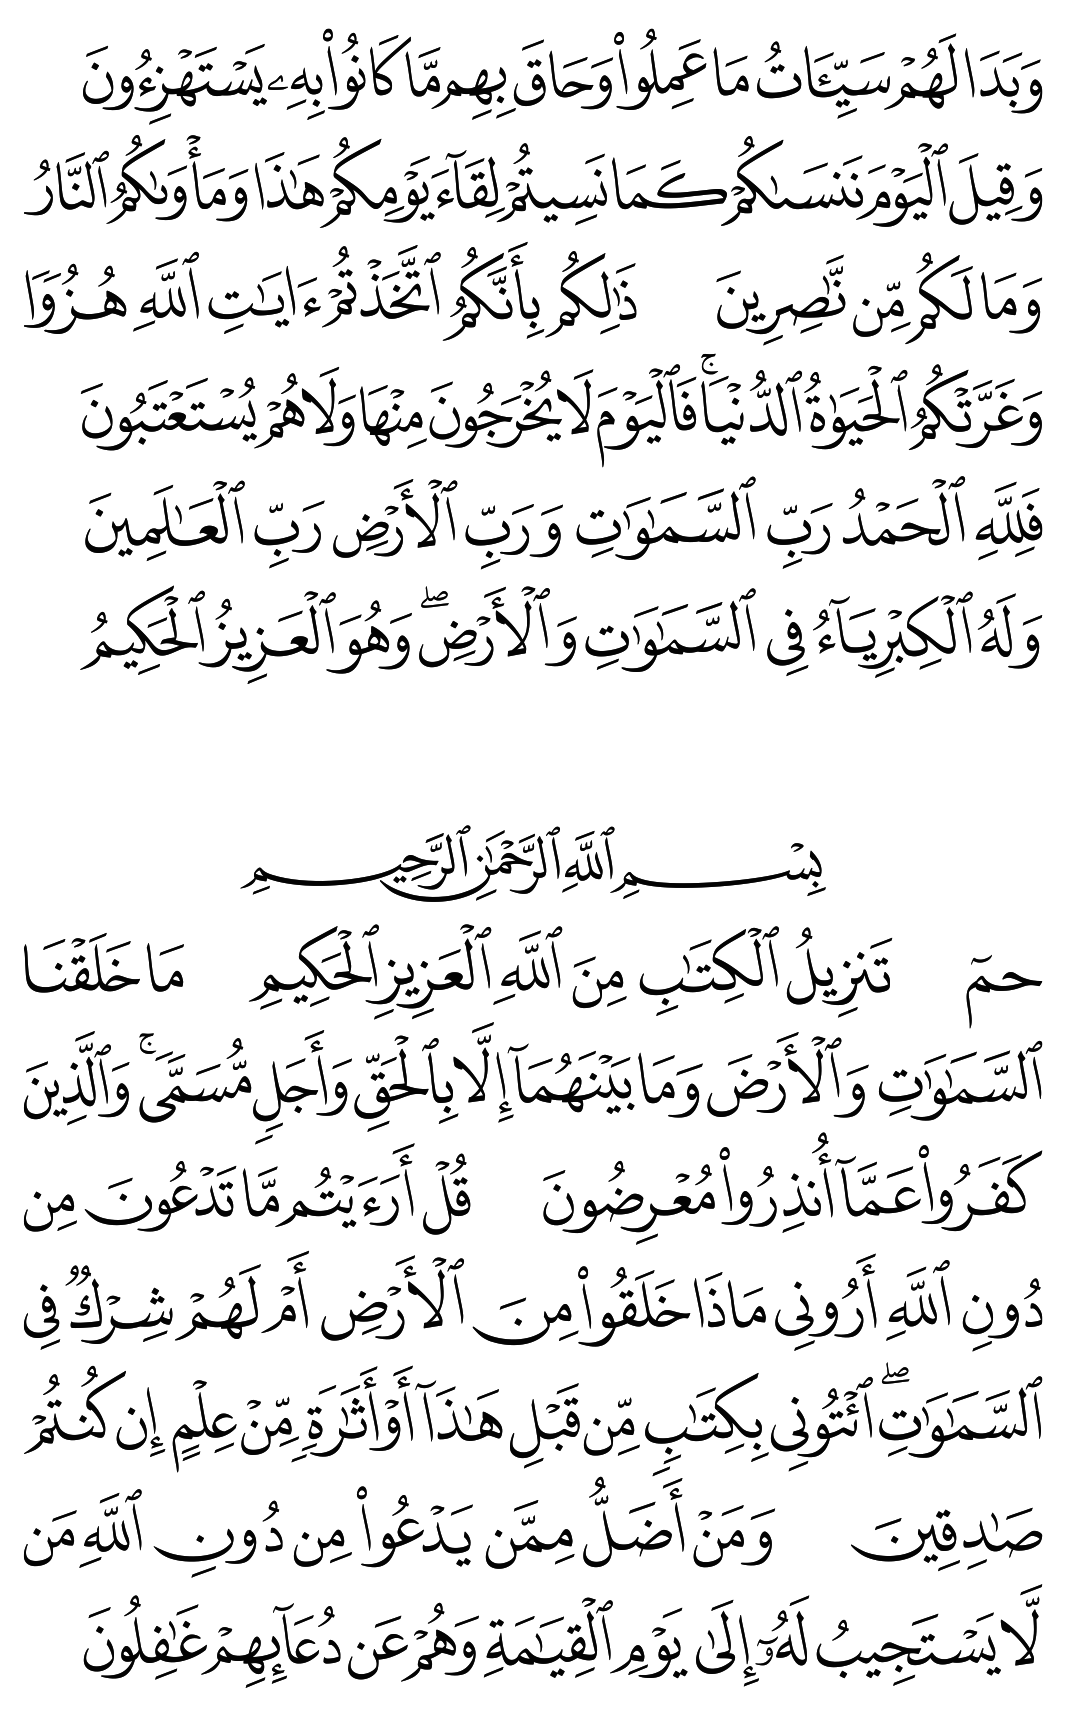 وَبَدَا لَهُمْ سَيِّـَٔاتُ مَا عَمِلُوا۟ وَحَاقَ بِهِم مَّا كَانُوا۟ بِهِۦ يَسْتَهْزِءُونَ
وَقِيلَ ٱلْيَوْمَ نَنسَىٰكُمْ كَمَا نَسِيتُمْ لِقَآءَ يَوْمِكُمْ هَـٰذَا وَمَأْوَىٰكُمُ ٱلنَّارُ
وَمَا لَكُم مِّن نَّـٰصِرِينَ ذَٰلِكُم بِأَنَّكُمُ ٱتَّخَذْتُمْ ءَايَـٰتِ ٱللَّهِ هُزُوًا
وَغَرَّتْكُمُ ٱلْحَيَوٰةُ ٱلدُّنْيَا ۚ فَٱلْيَوْمَ لَا يُخْرَجُونَ مِنْهَا وَلَا هُمْ يُسْتَعْتَبُونَ
فَلِلَّهِ ٱلْحَمْدُ رَبِّ ٱلسَّمَـٰوَٰتِ وَرَبِّ ٱلْأَرْضِ رَبِّ ٱلْعَـٰلَمِينَ
وَلَهُ ٱلْكِبْرِيَآءُ فِى ٱلسَّمَـٰوَٰتِ وَٱلْأَرْضِ ۖ وَهُوَ ٱلْعَزِيزُ ٱلْحَكِيمُ
بِسْمِ ٱللَّهِ ٱلرَّحْمَـٰنِ ٱلرَّحِيمِ
حمٓ تَنزِيلُ ٱلْكِتَـٰبِ مِنَ ٱللَّهِ ٱلْعَزِيزِ ٱلْحَكِيمِ مَا خَلَقْنَا
ٱلسَّمَـٰوَٰتِ وَٱلْأَرْضَ وَمَا بَيْنَهُمَآ إِلَّا بِٱلْحَقِّ وَأَجَلٍ مُّسَمًّى ۚ وَٱلَّذِينَ
كَفَرُوا۟ عَمَّآ أُنذِرُوا۟ مُعْرِضُونَ قُلْ أَرَءَيْتُم مَّا تَدْعُونَ مِن
دُونِ ٱللَّهِ أَرُونِى مَاذَا خَلَقُوا۟ مِنَ ٱلْأَرْضِ أَمْ لَهُمْ شِرْكٌ فِى
ٱلسَّمَـٰوَٰتِ ۖ ٱئْتُونِى بِكِتَـٰبٍ مِّن قَبْلِ هَـٰذَآ أَوْ أَثَـٰرَةٍ مِّنْ عِلْمٍ إِن كُنتُمْ
صَـٰدِقِينَ وَمَنْ أَضَلُّ مِمَّن يَدْعُوا۟ مِن دُونِ ٱللَّهِ مَن
لَّا يَسْتَجِيبُ لَهُۥٓ إِلَىٰ يَوْمِ ٱلْقِيَـٰمَةِ وَهُمْ عَن دُعَآئِهِمْ غَـٰفِلُونَ